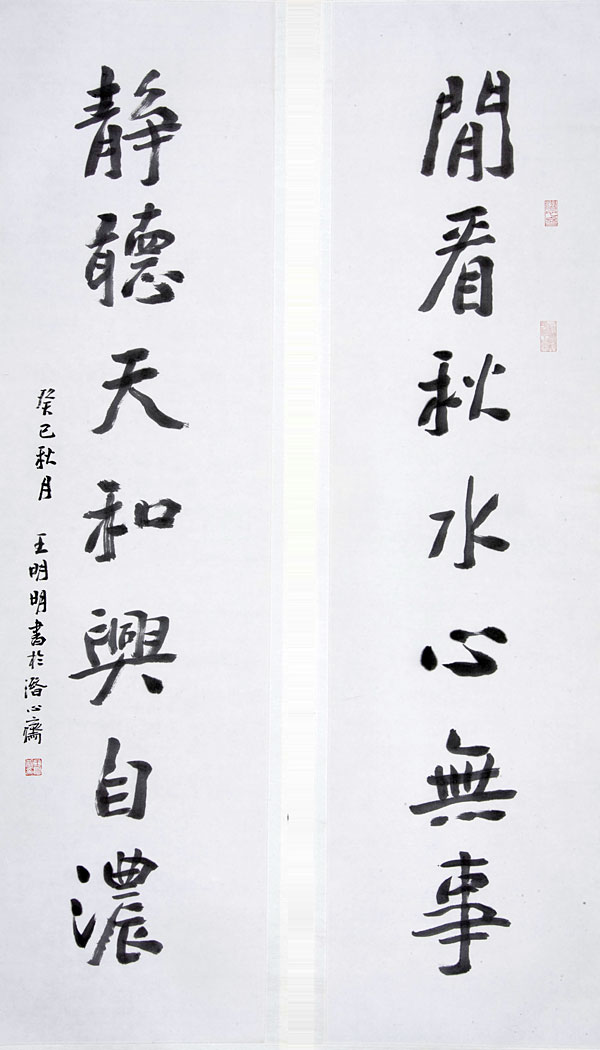 閒看秋水心無事
靜聽天和興自濃
癸巳秋月 王明明書於潛心齋